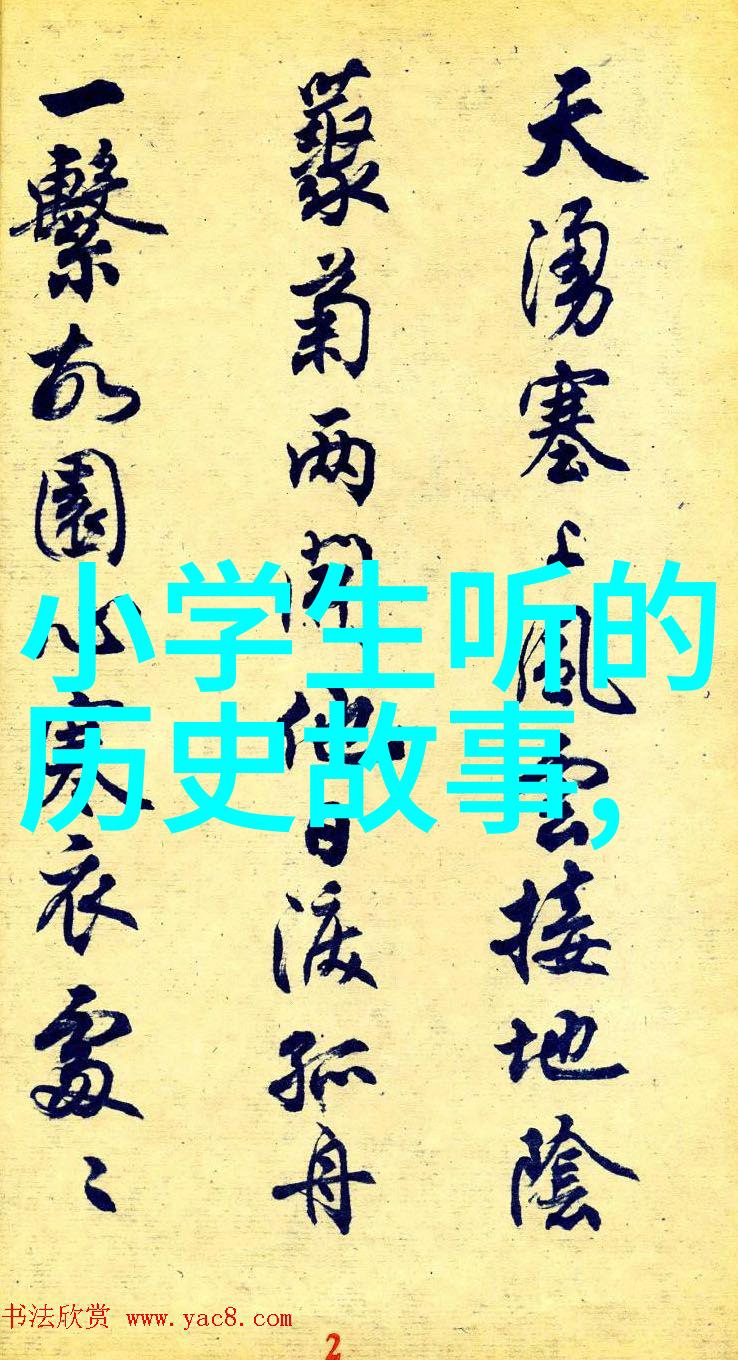 天湧塞上風雲接地陰
藂菊两開他日淚孤舟
一繫故園心寒衣處〻
小学生听的
历史故事,
书法欣赏 www.yac8.com
2